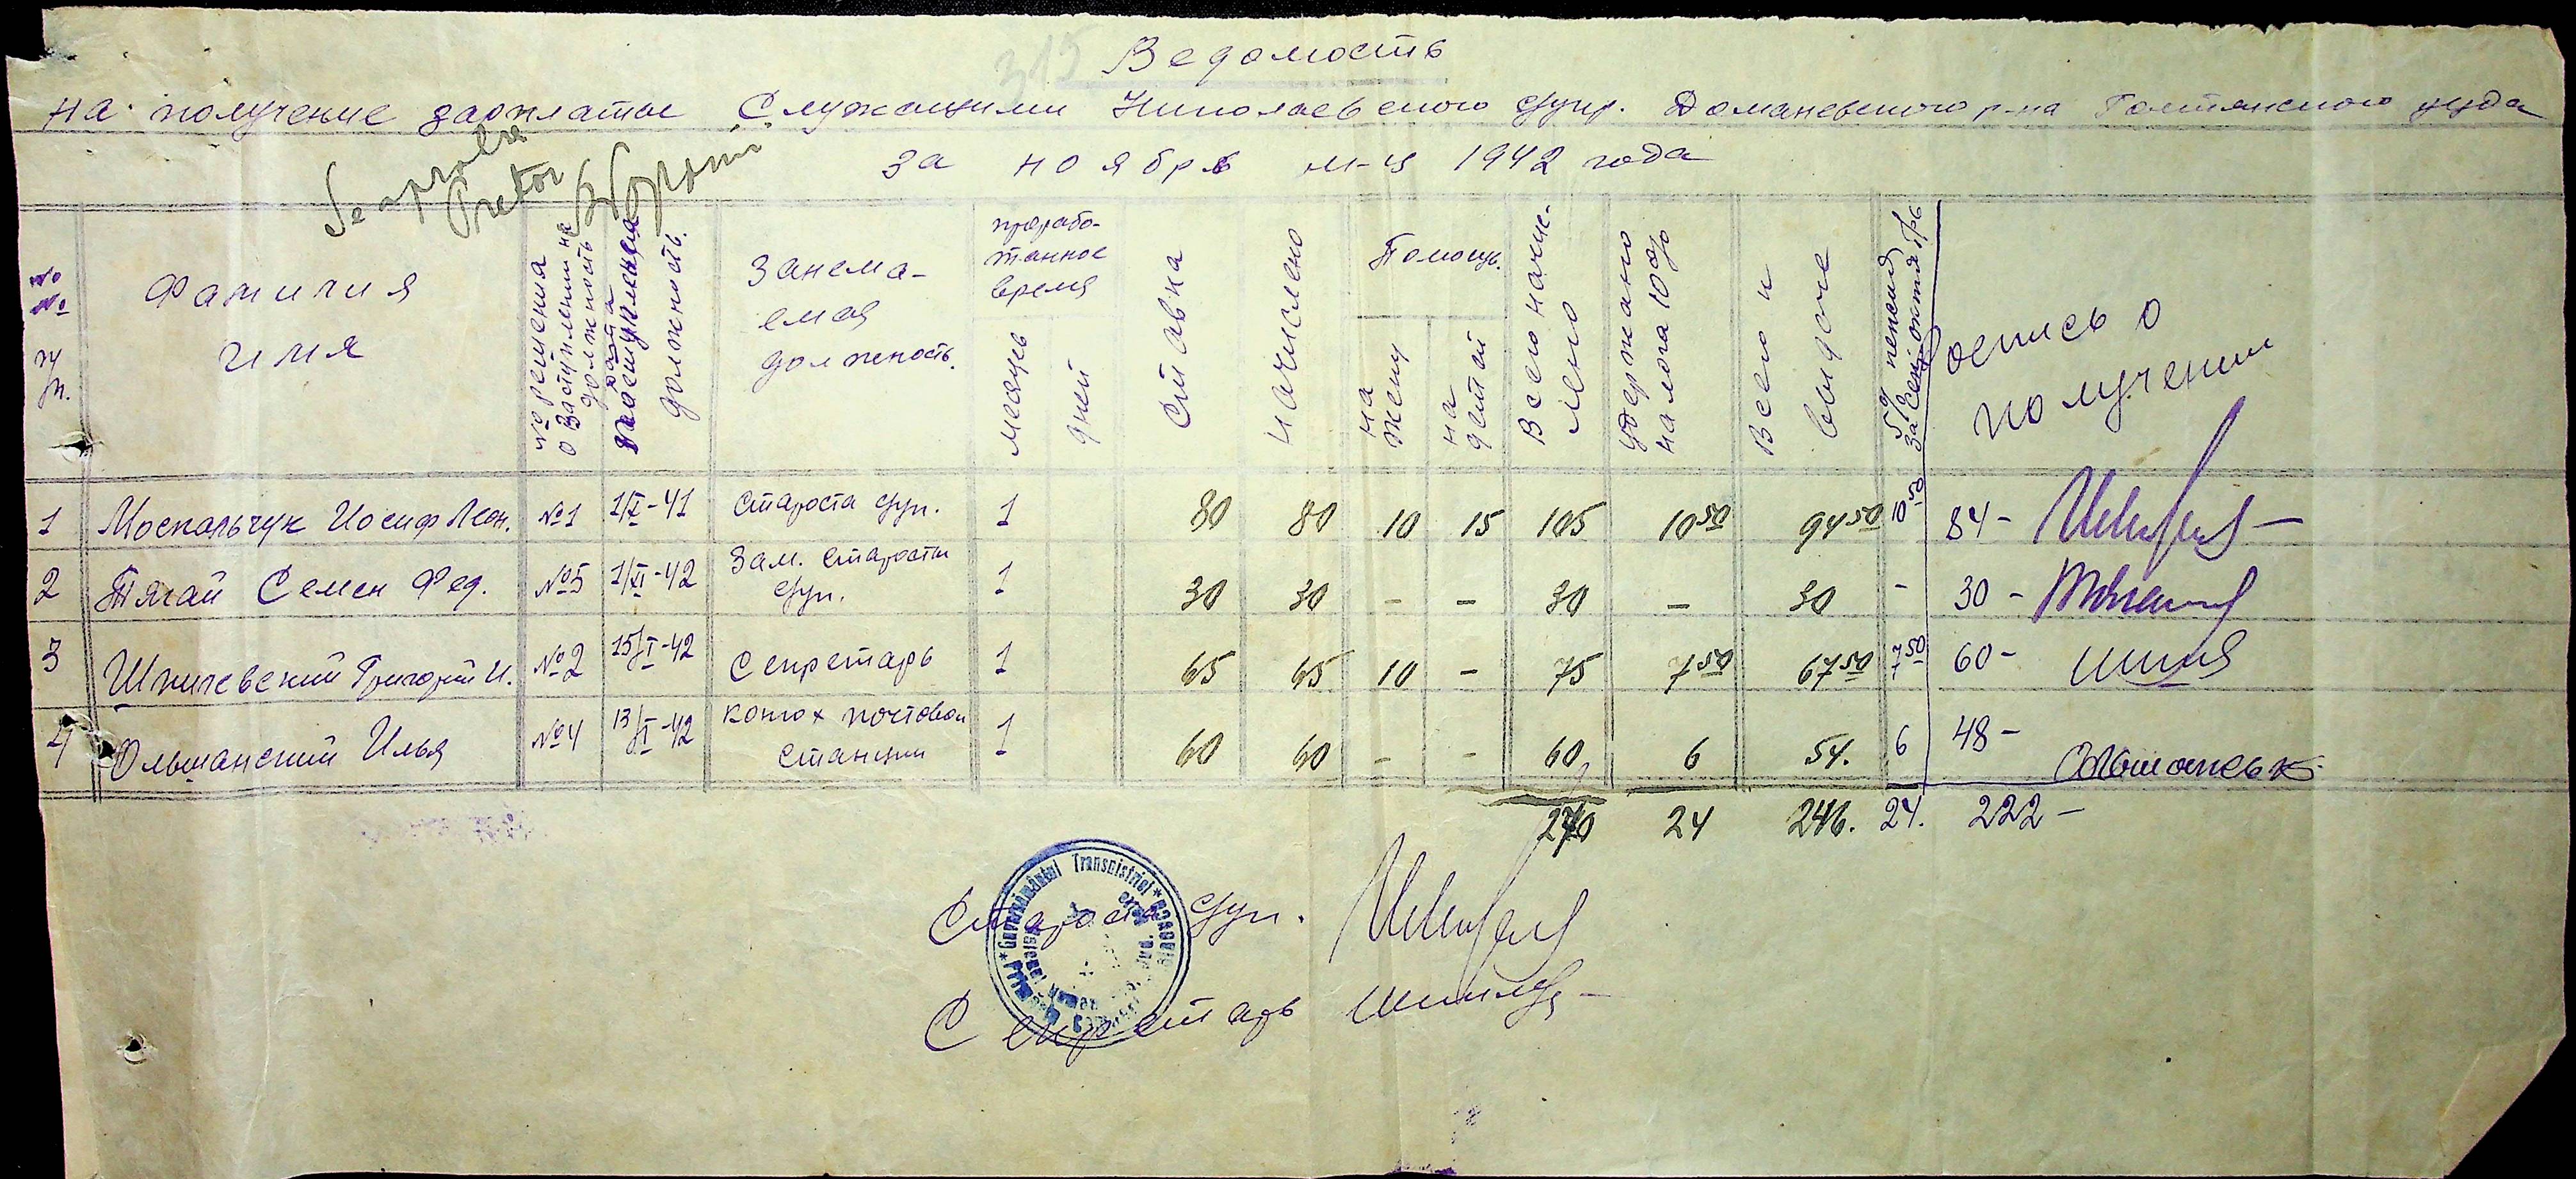 315
Ведомость
на получение зарплаты Служащими Николаевского српр. Доманевского р-на Голтянского уезда
за ноябрь м-ц 1942 года
Se aproba
Pretor
№ №
п/п.
Фамилия
имя
№ решения
о заступлении на
должность
дата
должность.
Занема-
емая
должность.
прорабо-
танное
время
месяцы
дней
Ставка
Начислено
Помощь.
на
жену
на
детей
Всего начис-
лено
удержано
налога 10%
Всего к
выдаче
5% пенсия
за сен, октябрь
роспись о
получении
1 Москальчук Иосиф Леон. №1 1/X-41 Староста српр. 1 80 80 10 15 105 10 50 94 50 10 50 84-
2 Тягай Семен Фед. №5 1/XI-42 Зам. старосты српр. 1 30 30 - - 30 - 30 - 30-
3 Шпилевский Григорий И. №2 15/I-42 Секретарь 1 65 65 10 - 75 7 50 67 50 7 50 60-
4 Ольшанский Илья №4 13/I-42 конюх почтовой станции 1 60 60 - - 60 6 54. 6 48- Ольшанськ
270 24 246. 24. 222-
Староста српр.
Секретарь
Guvernământul Transnistriei